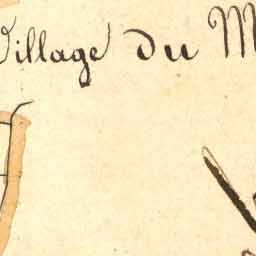 Village du M